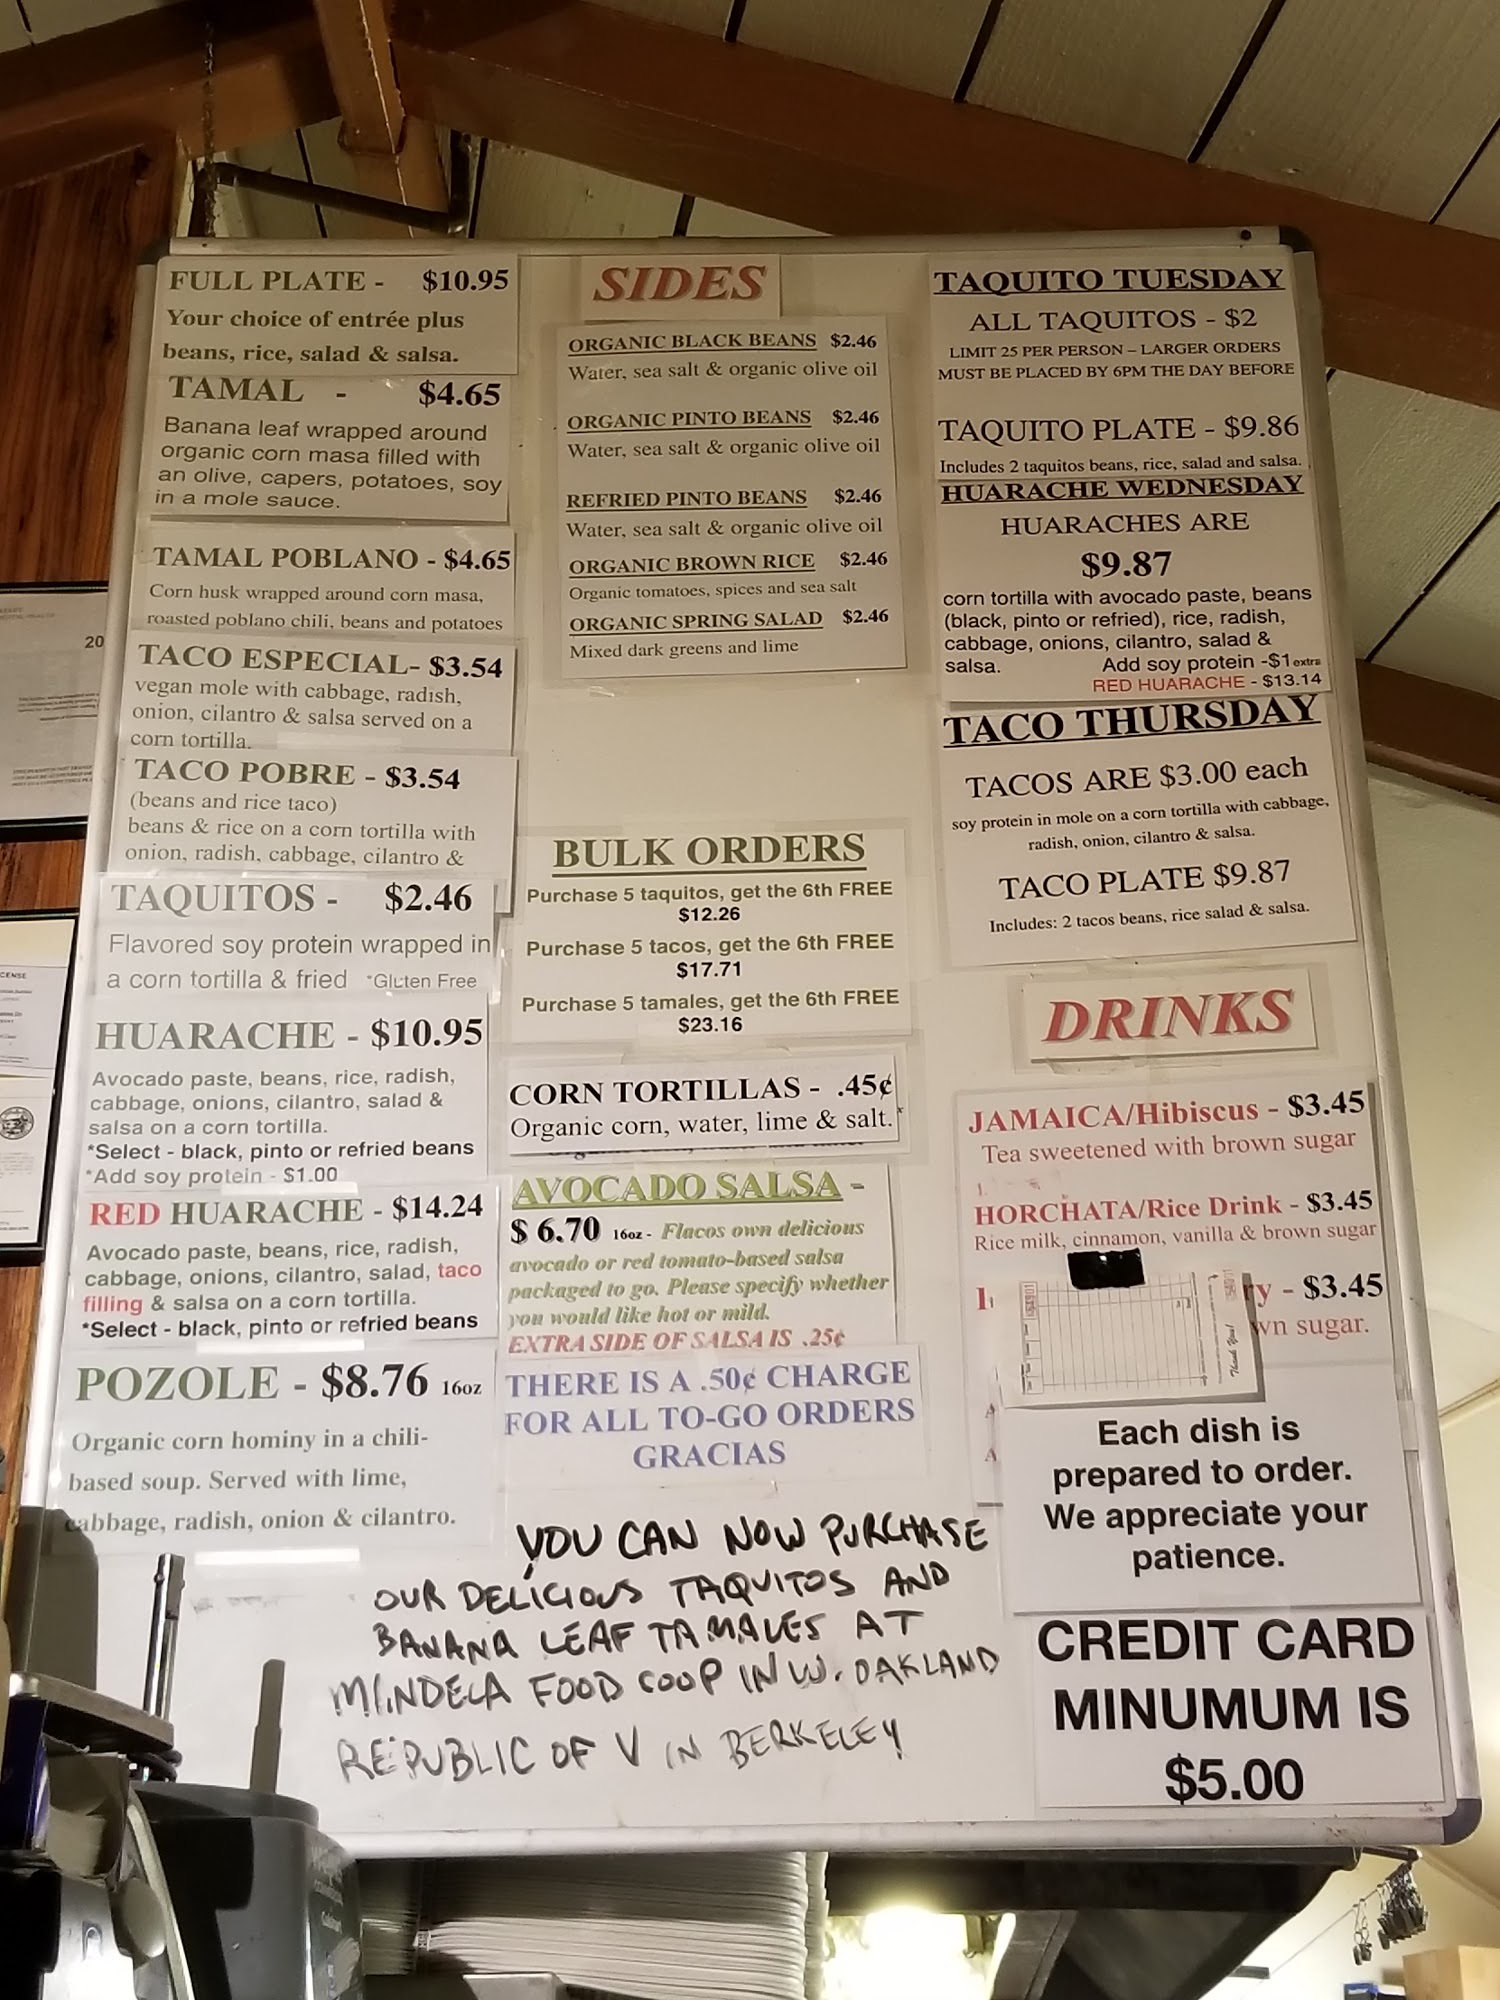 FULL PLATE - $10.95
Your choice of entrée plus
beans, rice, salad & salsa.
TAMAL - $4.65
Banana leaf wrapped around
organic corn masa filled with
an olive, capers, potatoes, soy
in a mole sauce.
TAMAL POBLANO - $4.65
Corn husk wrapped around corn masa,
roasted poblano chili, beans and potatoes
TACO ESPECIAL- $3.54
vegan mole with cabbage, radish,
onion, cilantro & salsa served on a
corn tortilla.
TACO POBRE - $3.54
(beans and rice taco)
beans & rice on a corn tortilla with
onion, radish, cabbage, cilantro &
TAQUITOS - $2.46
Flavored soy protein wrapped in
a corn tortilla & fried *Gluten Free
HUARACHE - $10.95
Avocado paste, beans, rice, radish,
cabbage, onions, cilantro, salad &
salsa on a corn tortilla.
*Select - black, pinto or refried beans
*Add soy protein - $1.00
RED HUARACHE - $14.24
Avocado paste, beans, rice, radish,
cabbage, onions, cilantro, salad, taco
filling & salsa on a corn tortilla.
*Select - black, pinto or refried beans
POZOLE - $8.76 16oz
Organic corn hominy in a chili-
based soup. Served with lime,
cabbage, radish, onion & cilantro.
SIDES
ORGANIC BLACK BEANS $2.46
Water, sea salt & organic olive oil
ORGANIC PINTO BEANS $2.46
Water, sea salt & organic olive oil
REFRIED PINTO BEANS $2.46
Water, sea salt & organic olive oil
ORGANIC BROWN RICE $2.46
Organic tomatoes, spices and sea salt
ORGANIC SPRING SALAD $2.46
Mixed dark greens and lime
BULK ORDERS
Purchase 5 taquitos, get the 6th FREE
$12.26
Purchase 5 tacos, get the 6th FREE
$17.71
Purchase 5 tamales, get the 6th FREE
$23.16
CORN TORTILLAS - .45¢
Organic corn, water, lime & salt.*
AVOCADO SALSA -
$ 6.70 16oz - Flacos own delicious
avocado or red tomato-based salsa
packaged to go. Please specify whether
you would like hot or mild.
EXTRA SIDE OF SALSA IS .25¢
THERE IS A .50¢ CHARGE
FOR ALL TO-GO ORDERS
GRACIAS
YOU CAN NOW PURCHASE
OUR DELICIOUS TAQUITOS AND
BANANA LEAF TAMALES AT
MINDELA FOOD COOP IN W. OAKLAND
REPUBLIC OF V IN BERKELEY
TAQUITO TUESDAY
ALL TAQUITOS - $2
LIMIT 25 PER PERSON – LARGER ORDERS
MUST BE PLACED BY 6PM THE DAY BEFORE
TAQUITO PLATE - $9.86
Includes 2 taquitos beans, rice, salad and salsa.
HUARACHE WEDNESDAY
HUARACHES ARE
$9.87
corn tortilla with avocado paste, beans
(black, pinto or refried), rice, radish,
cabbage, onions, cilantro, salad &
salsa. Add soy protein -$1 extra
RED HUARACHE - $13.14
TACO THURSDAY
TACOS ARE $3.00 each
soy protein in mole on a corn tortilla with cabbage,
radish, onion, cilantro & salsa.
TACO PLATE $9.87
Includes: 2 tacos beans, rice salad & salsa.
DRINKS
JAMAICA/Hibiscus - $3.45
Tea sweetened with brown sugar
HORCHATA/Rice Drink - $3.45
Rice milk, cinnamon, vanilla & brown sugar
ry - $3.45
wn sugar.
Thank You!
Each dish is
prepared to order.
We appreciate your
patience.
CREDIT CARD
MINUMUM IS
$5.00